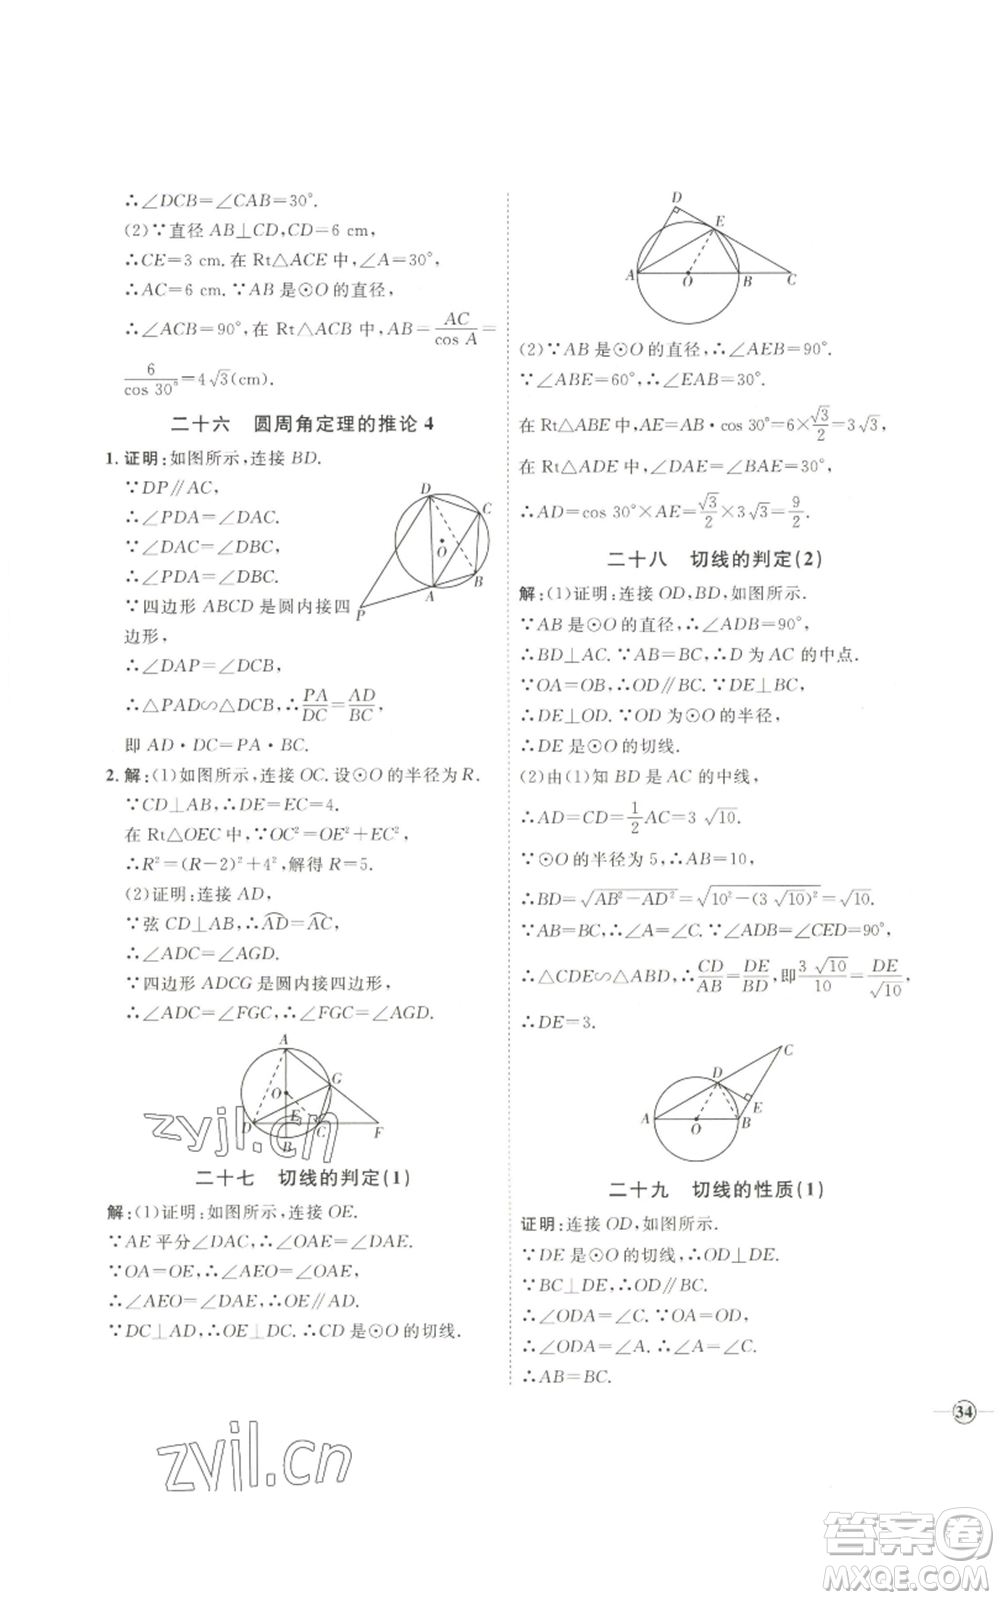 ∴∠DCB=∠CAB=30°.
(2)∵直径 AB⊥CD,CD=6 cm,
∴CE=3 cm. 在 Rt△ACE 中,∠A=30°,
∴AC=6 cm. ∵AB 是⊙O 的直径,
∴∠ACB=90°,在 Rt△ACB 中,AB=AC/cos A=
6/cos 30°=4√3(cm).
二十六 圆周角定理的推论 4
1. 证明:如图所示,连接 BD.
∵DP∥AC,
∴∠PDA=∠DAC.
∵∠DAC=∠DBC,
∴∠PDA=∠DBC.
∵四边形 ABCD 是圆内接四
边形,
∴∠DAP=∠DCB,
∴△PAD∽△DCB,∴PA/DC=AD/BC,
即 AD·DC=PA·BC.
D
C
O
B
A
P
2. 解:(1)如图所示,连接 OC. 设⊙O 的半径为 R.
∵CD⊥AB,∴DE=EC=4.
在 Rt△OEC 中,∵OC²=OE²+EC²,
∴R²=(R-2)²+4²,解得 R=5.
(2)证明:连接 AD,
∵弦 CD⊥AB,∴AD=AC,
∴∠ADC=∠AGD.
∵四边形 ADCG 是圆内接四边形,
∴∠ADC=∠FGC,∴∠FGC=∠AGD.
A
G
O
D
E
C
F
B
二十七 切线的判定(1)
解:(1)证明:如图所示,连接 OE.
∵AE 平分∠DAC,∴∠OAE=∠DAE.
∵OA=OE,∴∠AEO=∠OAE,
∴∠AEO=∠DAE,∴OE∥AD.
∵DC⊥AD,∴OE⊥DC. ∴CD 是⊙O 的切线.
D
E
A
O
B
C
(2)∵AB 是⊙O 的直径,∴∠AEB=90°.
∵∠ABE=60°,∴∠EAB=30°.
在 Rt△ABE 中,AE=AB·cos 30°=6×√3/2=3√3.
在 Rt△ADE 中,∠DAE=∠BAE=30°,
∴AD=cos 30°×AE=√3/2×3√3=9/2.
二十八 切线的判定(2)
解:(1)证明:连接 OD,BD,如图所示.
∵AB 是⊙O 的直径,∴∠ADB=90°,
∴BD⊥AC. ∵AB=BC,∴D 为 AC 的中点.
∵OA=OB,∴OD∥BC. ∵DE⊥BC,
∴DE⊥OD. ∵OD 为⊙O 的半径,
∴DE 是⊙O 的切线.
(2)由(1)知 BD 是 AC 的中线,
∴AD=CD=1/2AC=3√10.
∵⊙O 的半径为 5,∴AB=10,
∴BD=√AB²-AD²=√10²-(3√10)²=√10.
∵AB=BC,∴∠A=∠C. ∵∠ADB=∠CED=90°,
∴△CDE∽△ABD,∴CD/AB=DE/BD,即3√10/10=DE/√10,
∴DE=3.
C
D
E
A
O
B
二十九 切线的性质(1)
证明:连接 OD,如图所示.
∵DE 是⊙O 的切线,∴OD⊥DE.
∵BC⊥DE,∴OD∥BC.
∴∠ODA=∠C. ∵OA=OD,
∴∠ODA=∠A. ∴∠A=∠C.
∴AB=BC.
34
zyjl.cn
zyjl.cn
答案卷
MXQE.COM